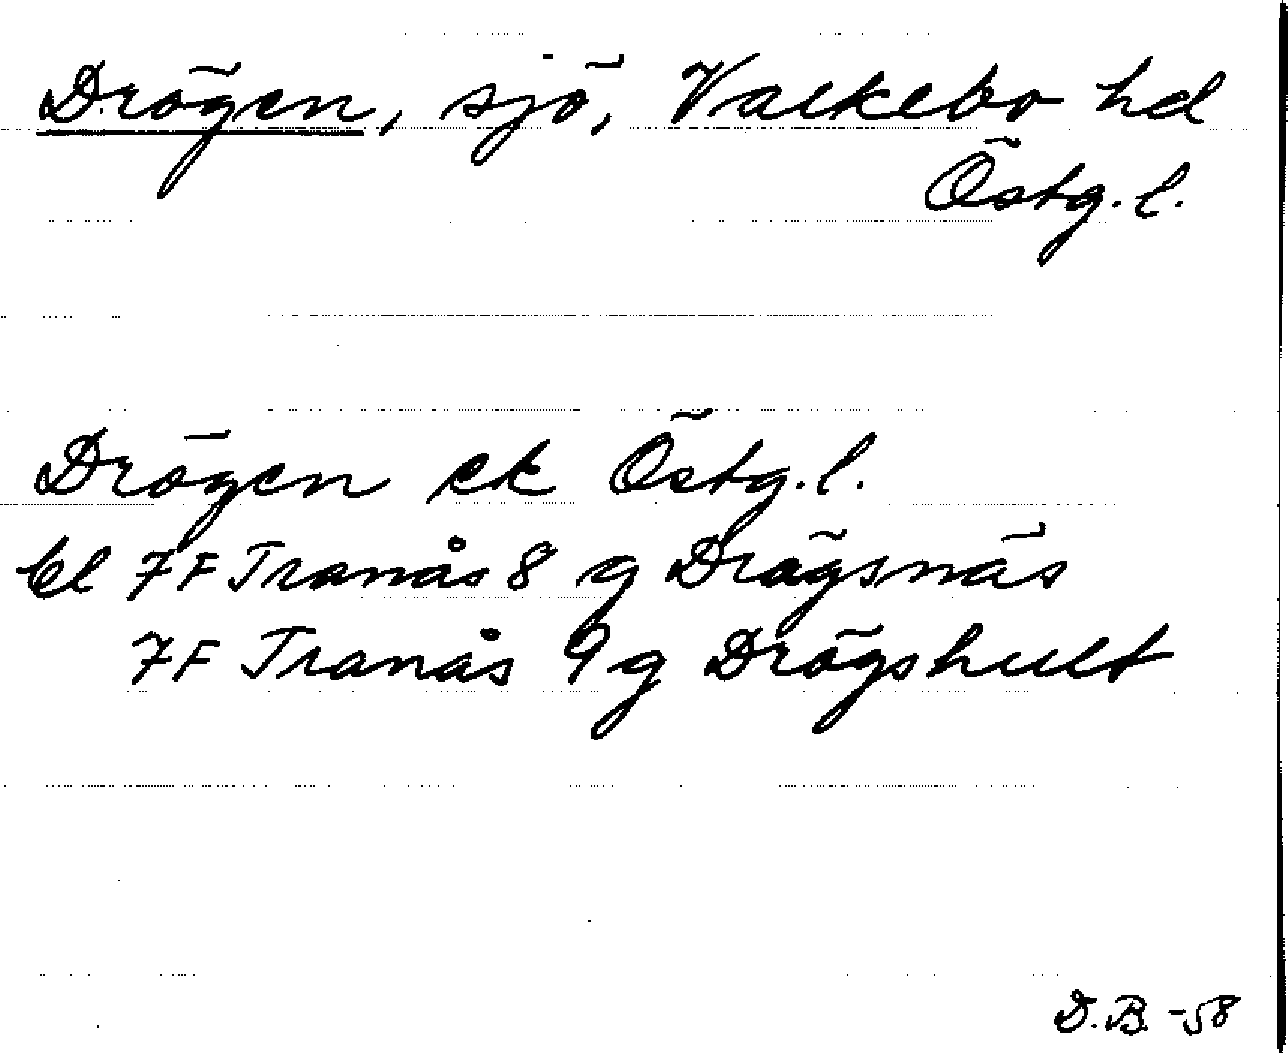 Drögen, sjö, Valkebo hd
Östg. l.
Drögen ek Östg. l.
bl 7F Tranås 8 g Drögsnäs
7F Tranås 9 g Drögshult
D.B. -58